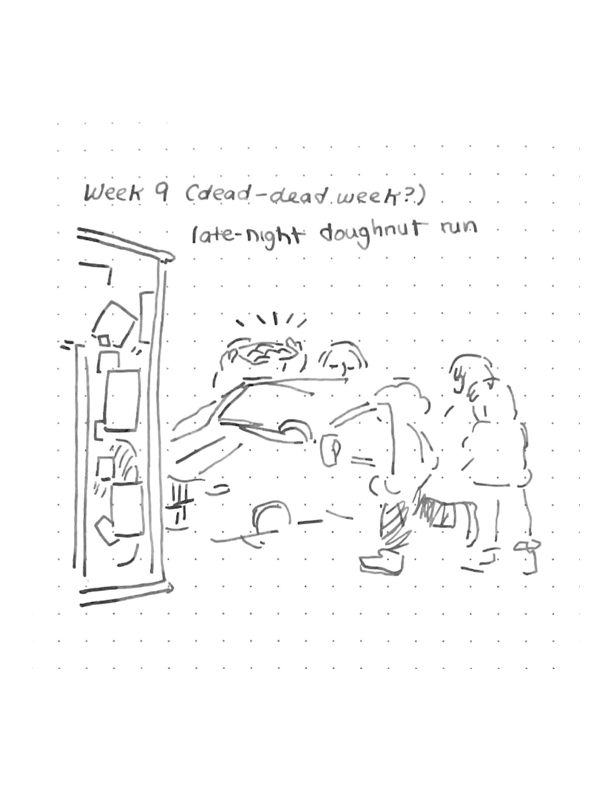 Week 9 (dead-dead week?)
late-night doughnut run